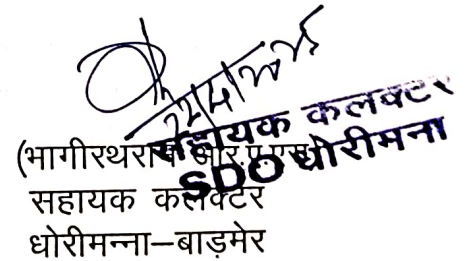 सहायक कलक्टर
SDO धोरीमना
(भागीरथराम आर.ए.एस)
सहायक कलक्टर
धोरीमन्ना–बाड़मेर